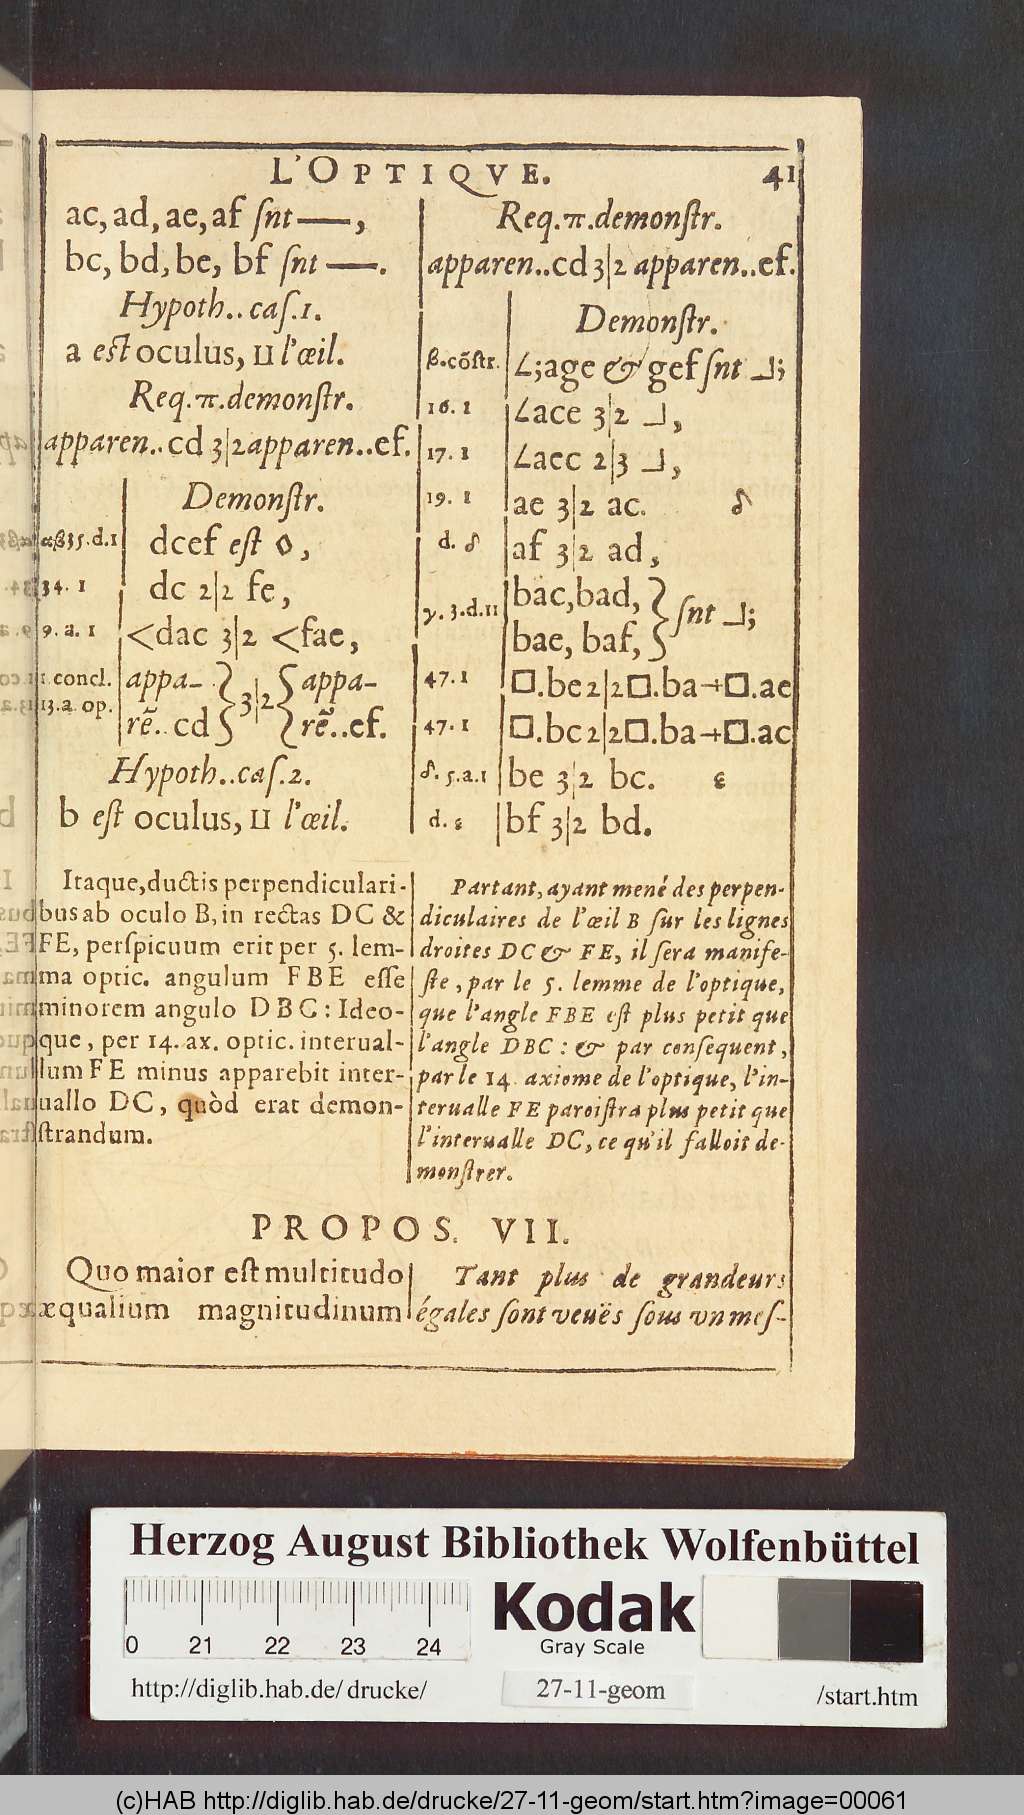 L'OPTIQVE. 41
ac, ad, ae, af ſnt —,
bc, bd, be, bf ſnt —.
Hypoth.. caſ.1.
a est oculus, II l'œil.
Req.π.demonſtr.
apparen.. cd 3|2 apparen..ef.
Demonſtr.
αβ35.d.1 dcef eſt ◊,
34. 1 dc 2|2 fe,
9. a. 1 <dac 3|2 <fae,
1.concl. appa- } 3|2 { appa-
13.a op. rẽ.. cd } { rẽ..ef.
Hypoth..caſ.2.
b eſt oculus, II l'œil.
Req.π.demonſtr.
apparen..cd 3|2 apparen..ef.
Demonſtr.
β.cõſtr. ∠;age & gef ſnt ⅃;
16. 1 ∠ace 3|2 ⅃,
17. 1 ∠aec 2|3 ⅃,
19. 1 ae 3|2 ac. δ
d. δ af 3|2 ad,
γ. 3.d.11 bac,bad, } ſnt ⅃;
bae, baf, }
47.1 □.be 2|2 □.ba+□.ae
47.1 □.bc 2|2 □.ba+□.ac
δ. 5.a.1 be 3|2 bc. ε
d. ε bf 3|2 bd.
Itaque,ductis perpendiculari-
bus ab oculo B, in rectas DC &
FE, perſpicuum erit per 5. lem-
ma optic. angulum FBE eſſe
minorem angulo DBC: Ideo-
que, per 14. ax. optic. interual-
lum FE minus apparebit inter-
uallo DC, quòd erat demon-
ſtrandum.
Partant, ayant mené des perpen-
diculaires de l'œil B ſur les lignes
droites DC & FE, il ſera manife-
ſte, par le 5. lemme de l'optique,
que l'angle FBE eſt plus petit que
l'angle DBC: & par conſequent,
par le 14. axiome de l'optique, l'in-
terualle FE paroiſtra plus petit que
l'interualle DC, ce qu'il falloit de-
monſtrer.
PROPOS. VII.
Quo maior eſt multitudo
æqualium magnitudinum
Tant plus de grandeurs
égales ſont veuës ſous vn meſ-
Herzog August Bibliothek Wolfenbüttel
0 21 22 23 24
Kodak
Gray Scale
http://diglib.hab.de/ drucke/ 27-11-geom /start.htm
(c)HAB http://diglib.hab.de/drucke/27-11-geom/start.htm?image=00061